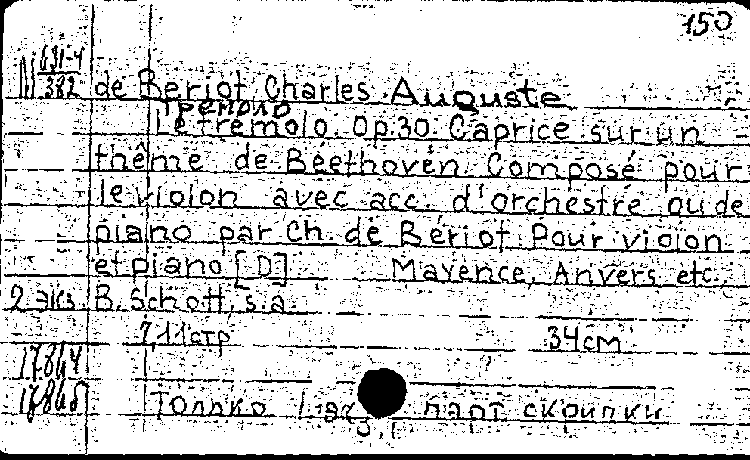 150
N 691-4
382
de Beriot, Charles Auguste
Тремоло
Le tremolo. Op.30. Caprice sur un
thême de Beethoven. Composé pour
le violon avec acc. d'orchestre ou de
piano par Ch. de Bériot. Pour violon
et piano [D] Mayence, Anvers etc.,
2 экз. B. Schott, s.a.
7,11 стр 34 см
17864
17865
Только 1 парт скрипки